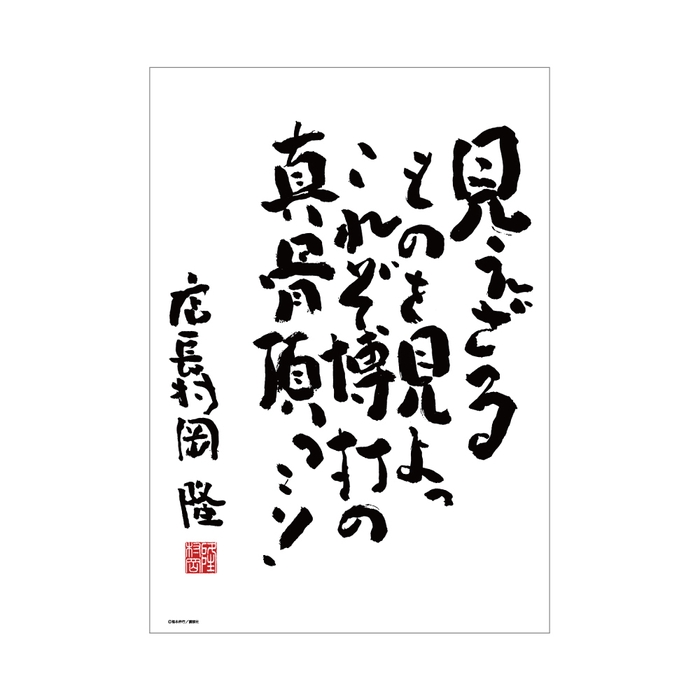 見えざる
ものを見よっ
これぞ博打の
真骨頂っ…!
店長村岡 隆
村岡隆
©福本伸行/講談社